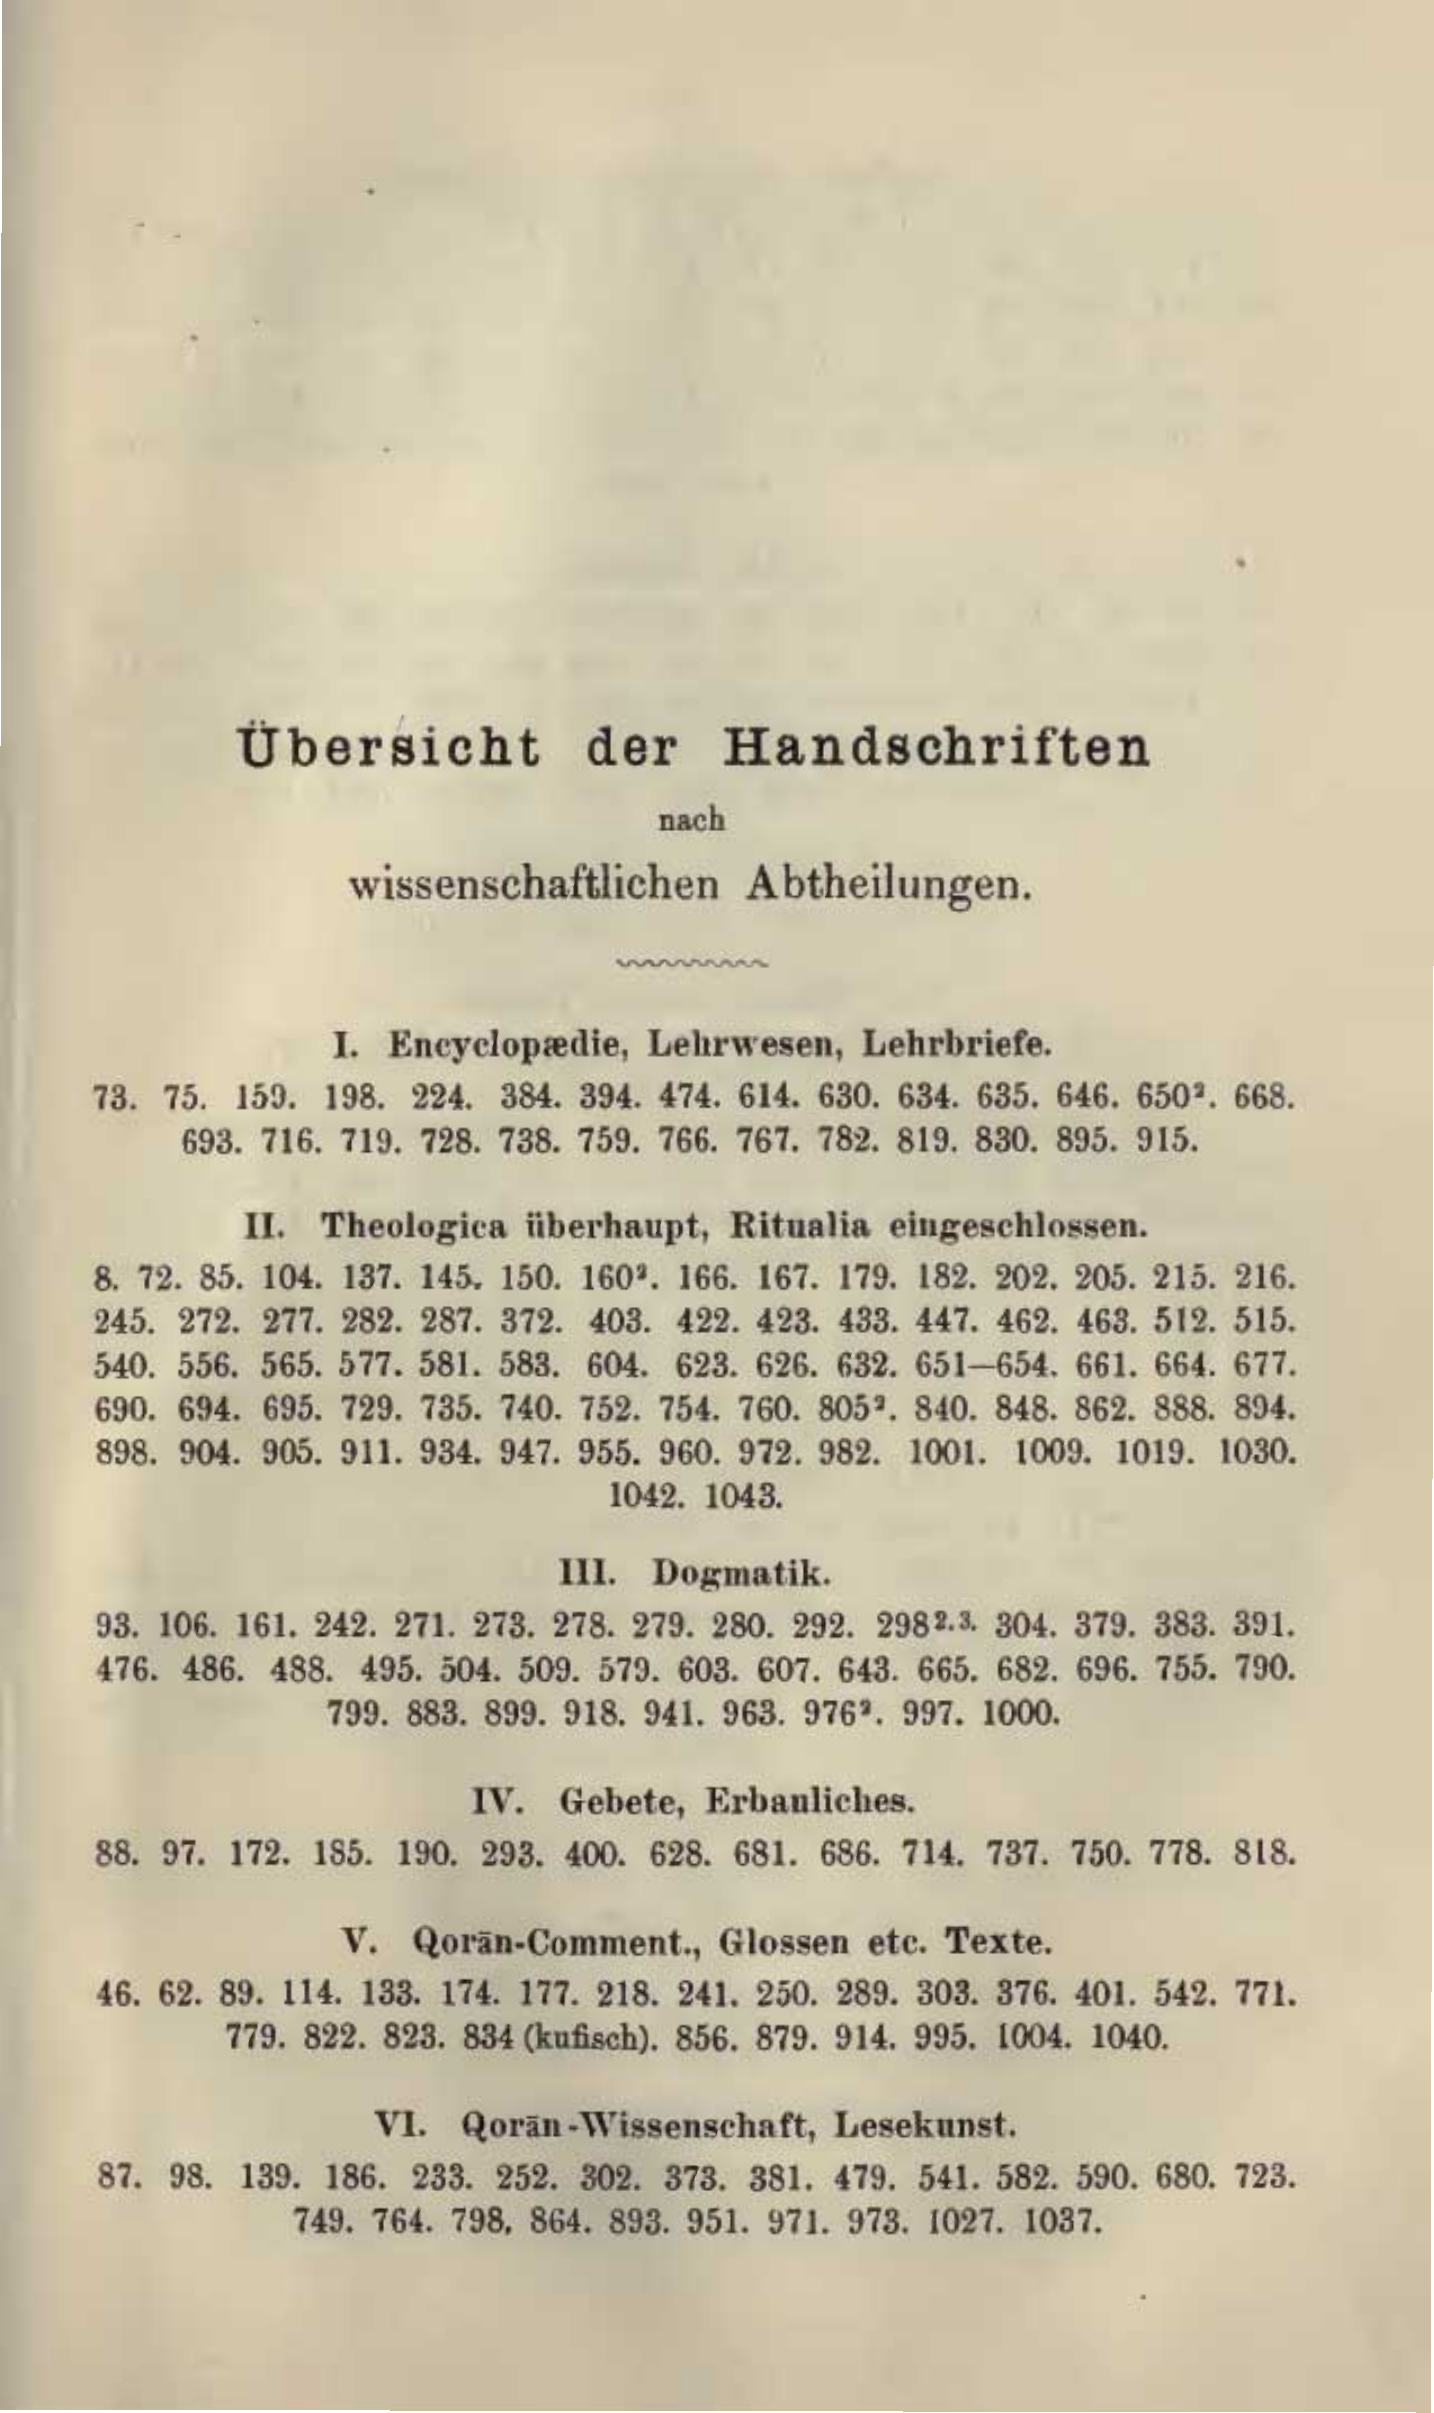 Übersicht der Handschriften
nach
wissenschaftlichen Abtheilungen.
I. Encyclopædie, Lehrwesen, Lehrbriefe.
73. 75. 159. 198. 224. 384. 394. 474. 614. 630. 634. 635. 646. 650². 668.
693. 716. 719. 728. 738. 759. 766. 767. 782. 819. 830. 895. 915.
II. Theologica überhaupt, Ritualia eingeschlossen.
8. 72. 85. 104. 137. 145. 150. 160². 166. 167. 179. 182. 202. 205. 215. 216.
245. 272. 277. 282. 287. 372. 403. 422. 423. 433. 447. 462. 463. 512. 515.
540. 556. 565. 577. 581. 583. 604. 623. 626. 632. 651—654. 661. 664. 677.
690. 694. 695. 729. 735. 740. 752. 754. 760. 805². 840. 848. 862. 888. 894.
898. 904. 905. 911. 934. 947. 955. 960. 972. 982. 1001. 1009. 1019. 1030.
1042. 1043.
III. Dogmatik.
93. 106. 161. 242. 271. 273. 278. 279. 280. 292. 298²·³· 304. 379. 383. 391.
476. 486. 488. 495. 504. 509. 579. 603. 607. 643. 665. 682. 696. 755. 790.
799. 883. 899. 918. 941. 963. 976². 997. 1000.
IV. Gebete, Erbauliches.
88. 97. 172. 185. 190. 293. 400. 628. 681. 686. 714. 737. 750. 778. 818.
V. Qorān-Comment., Glossen etc. Texte.
46. 62. 89. 114. 133. 174. 177. 218. 241. 250. 289. 303. 376. 401. 542. 771.
779. 822. 823. 834 (kufisch). 856. 879. 914. 995. 1004. 1040.
VI. Qorān-Wissenschaft, Lesekunst.
87. 98. 139. 186. 233. 252. 302. 373. 381. 479. 541. 582. 590. 680. 723.
749. 764. 798. 864. 893. 951. 971. 973. 1027. 1037.